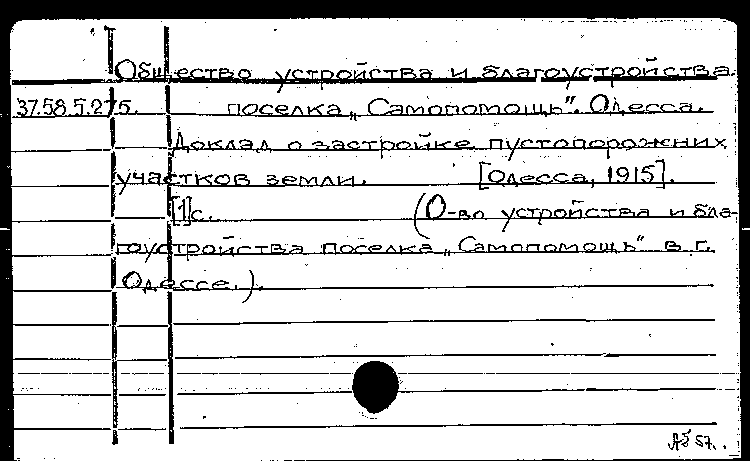 Общество устройства и благоустройства
37.58.5.275. поселка „Самопомощь". Одесса.
Доклад о застройке пустопорожних
участков земли. [Одесса, 1915].
[1]с. (О-во устройства и бла-
гоустройства поселка „Самопомощь" в г.
Одессе.).
57.